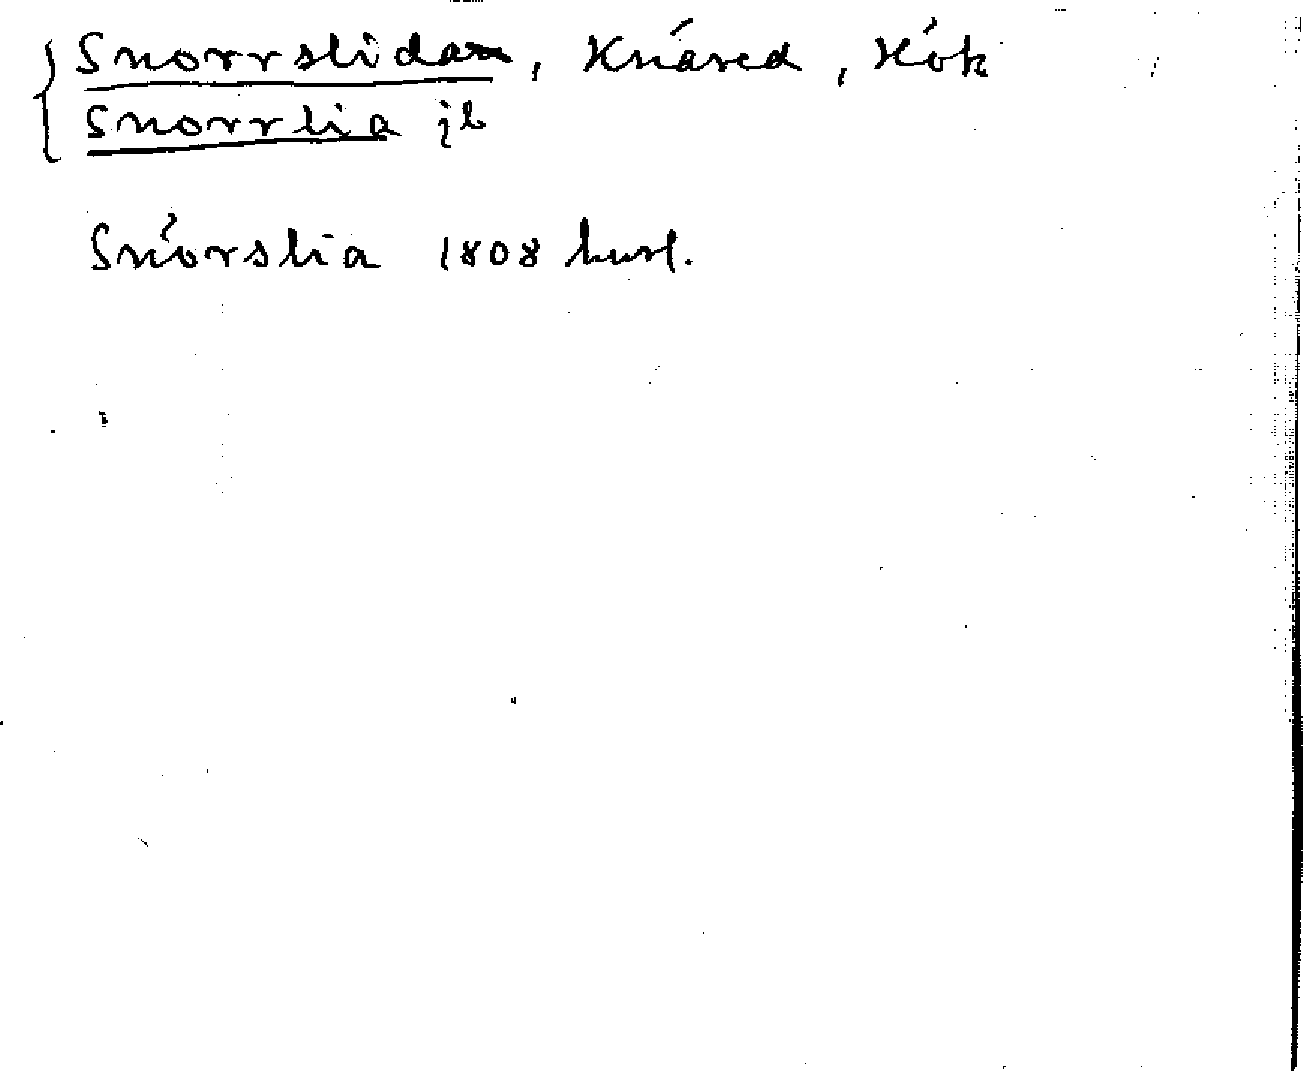 Snorrslidan, Knäred, Hök
Snorrlia jb
Snörslia 1808 husf.